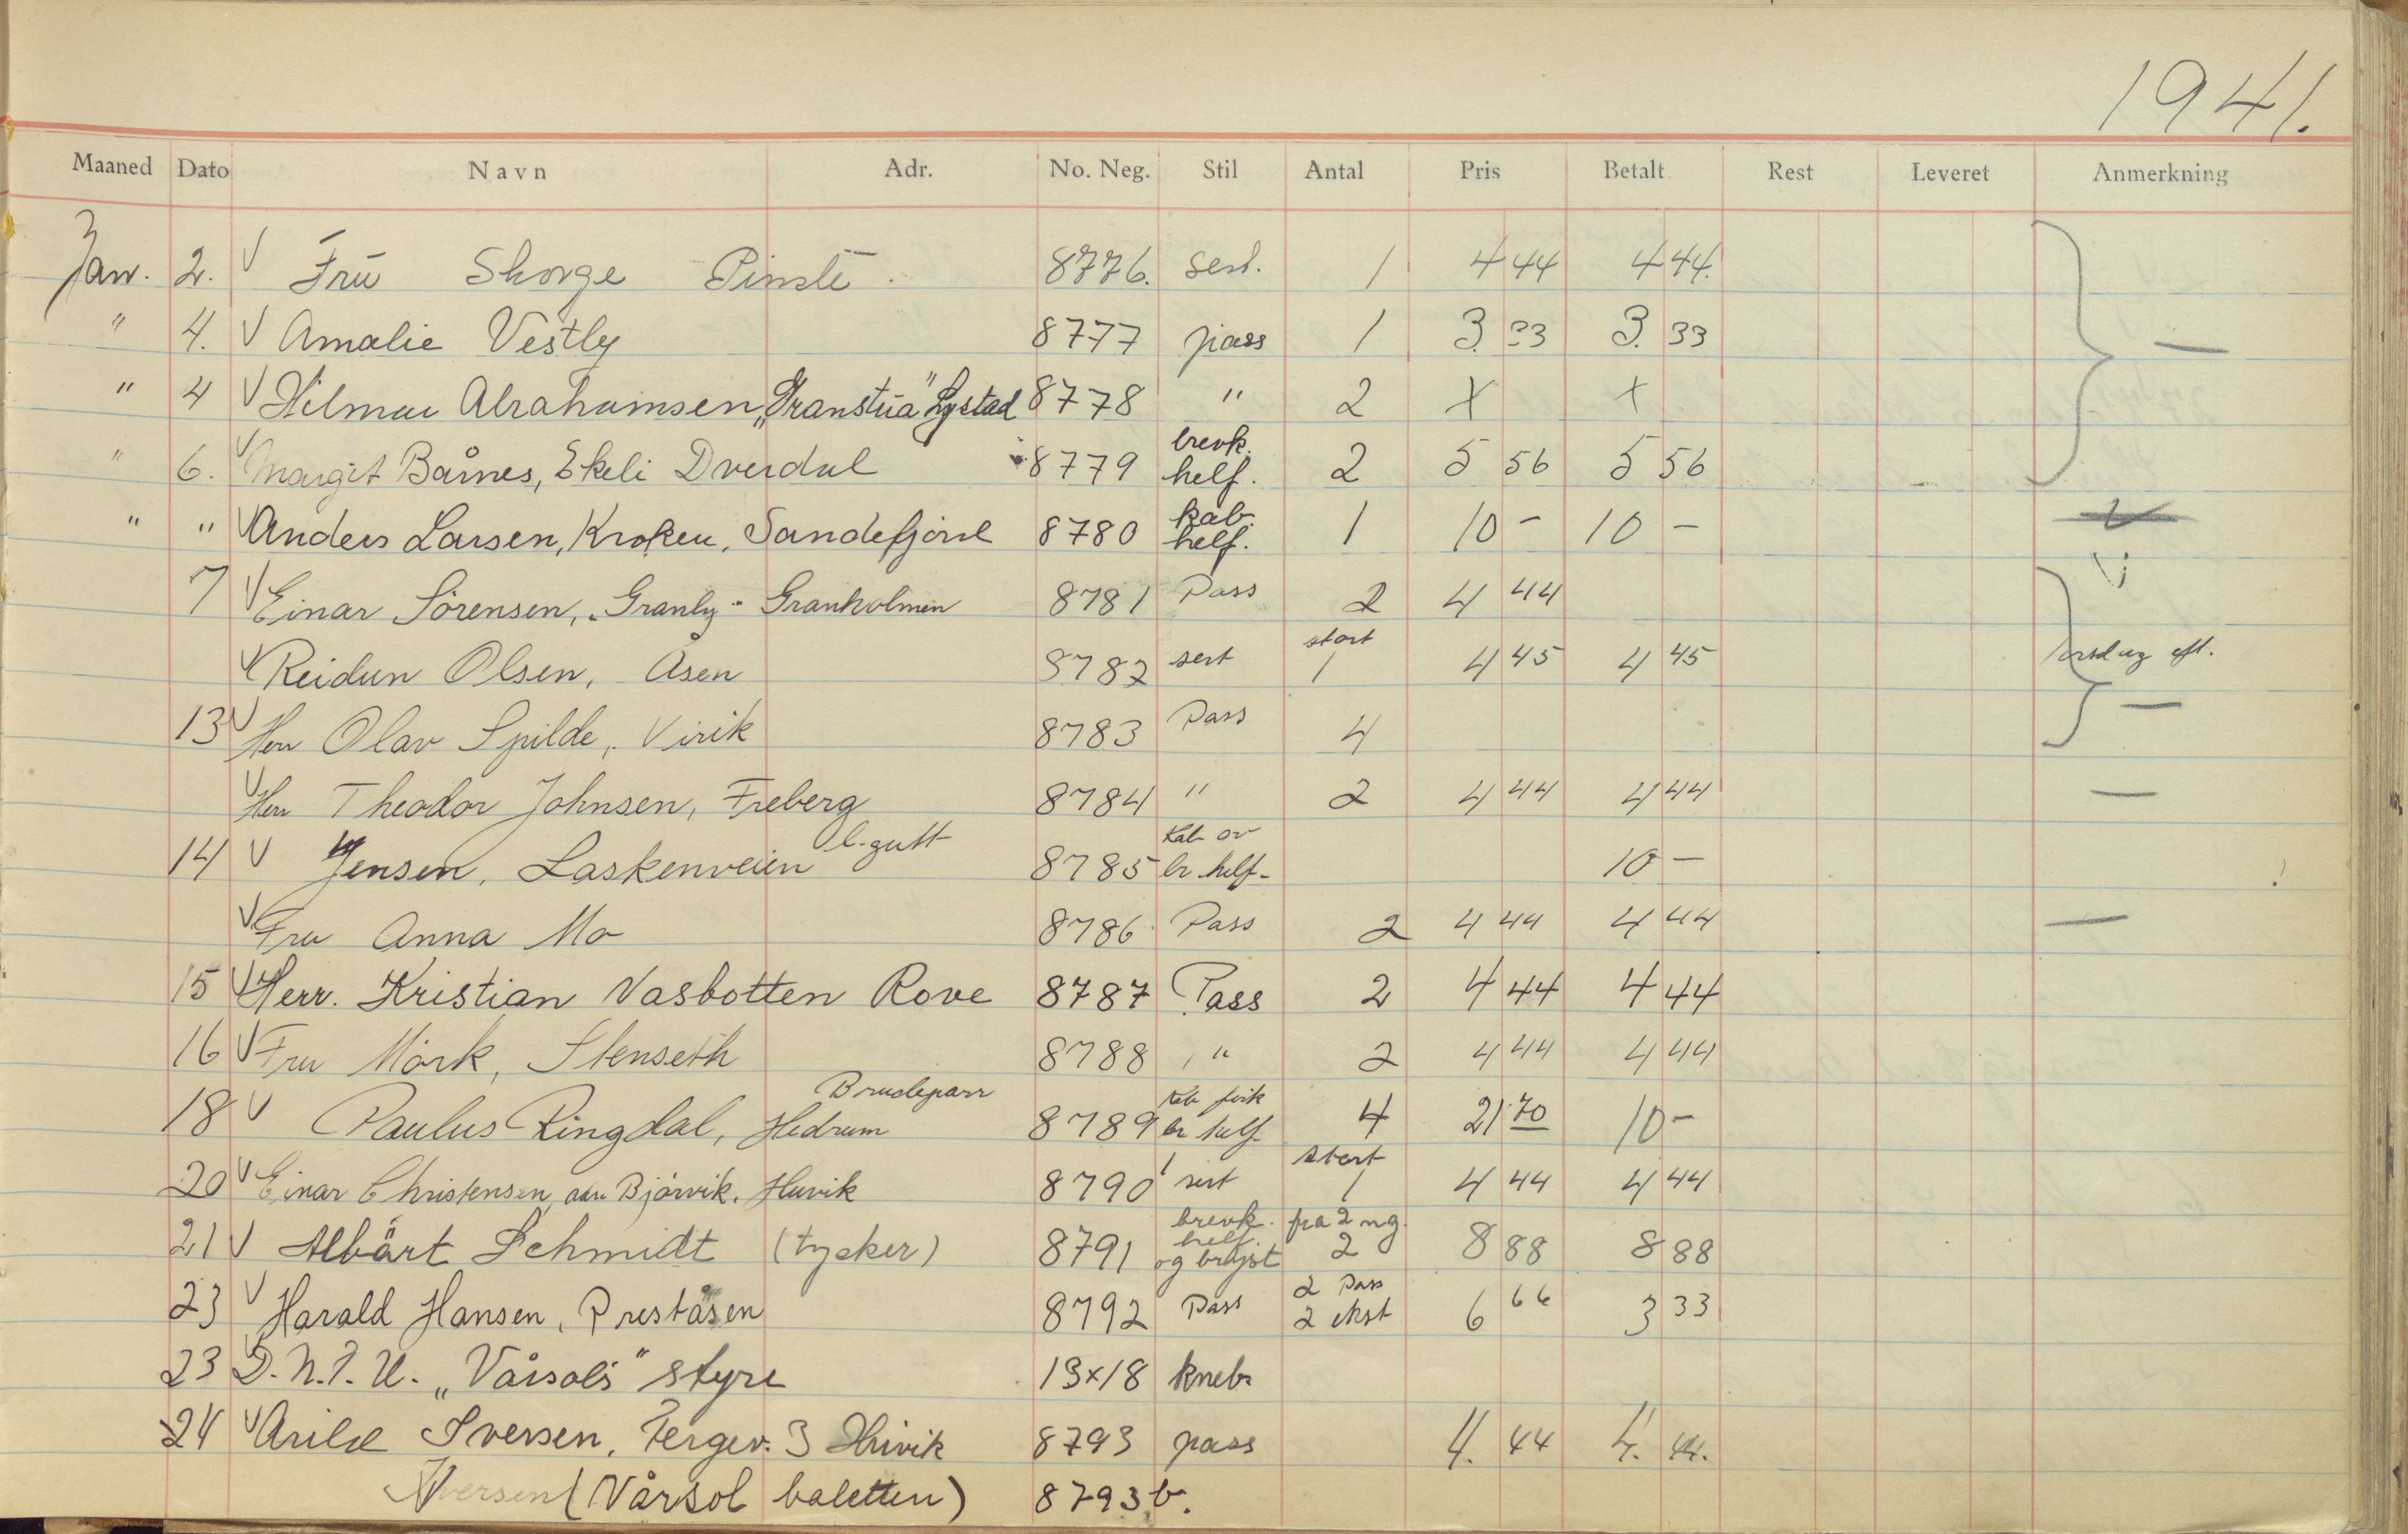 1941.
Maaned Dato Navn Adr. No. Neg. Stil Antal Pris Betalt Rest Leveret Anmerkning
Jan. 2. V Frū Skorge Pindle 8776. sert. 1 4 44 4 44.
" 4. V Amalie Vestly 8777 pass 1 3. 33 3. 33 —
" 4 V Hilmar Abrahamsen, "Granstūa" Lystad 8778 " 2 X X
" 6. V Margit Bårnes, Ekeli Dverdal 8779 brevk. helf. 2 5 56 5 56
" " V Anders Larsen, Kroken, Sandefjord 8780 kab. helf. 1 10 - 10 -
7 V Einar Sørensen, "Granly" Granholmen 8781 Pass 2 4 44
V Reidun Olsen, Åsen 8782 sert stort 1 4 45 4 45 eft.
13 V Herr Olav Spilde, Virik 8783 Pass 4 —
V Herr Theodor Johnsen, Freberg 8784 " 2 4 44 4 44 —
14 V Jensen, Laskenveien l. gutt 8785 Kab ov br helf- 10 -
V Fru Anna Mo 8786 Pass 2 4 44 4 44 —
15 V Herr. Kristian Vasbotten Rove 8787 Pass 2 4 44 4 44
16 V Fru Mørk, Stenseth 8788 " 2 4 44 4 44
18 V Paulus Ringdal, Hedrum Brudeparr 8789 br helf 4 21 70 10 -
20 V Einar Christensen, adr Bjørvik, Huvik 8790 sert stort 1 4 44 4 44
21 V Albårt Schmidt (tysker) 8791 brevk. helf. og brujst fra 2 ng. 2 8 88 8 88
23 V Harald Hansen, Preståsen 8792 Pass 2 Pass 2 ekst 6 66 3 33
23 D.N.T.U. "Vårsols" styre 13x18 kneb
24 V Arild Iversen, Fergev. 3 Huvik 8793 pass 4. 44 4. 44.
Iversen (Vårsol baletten) 8793 b.